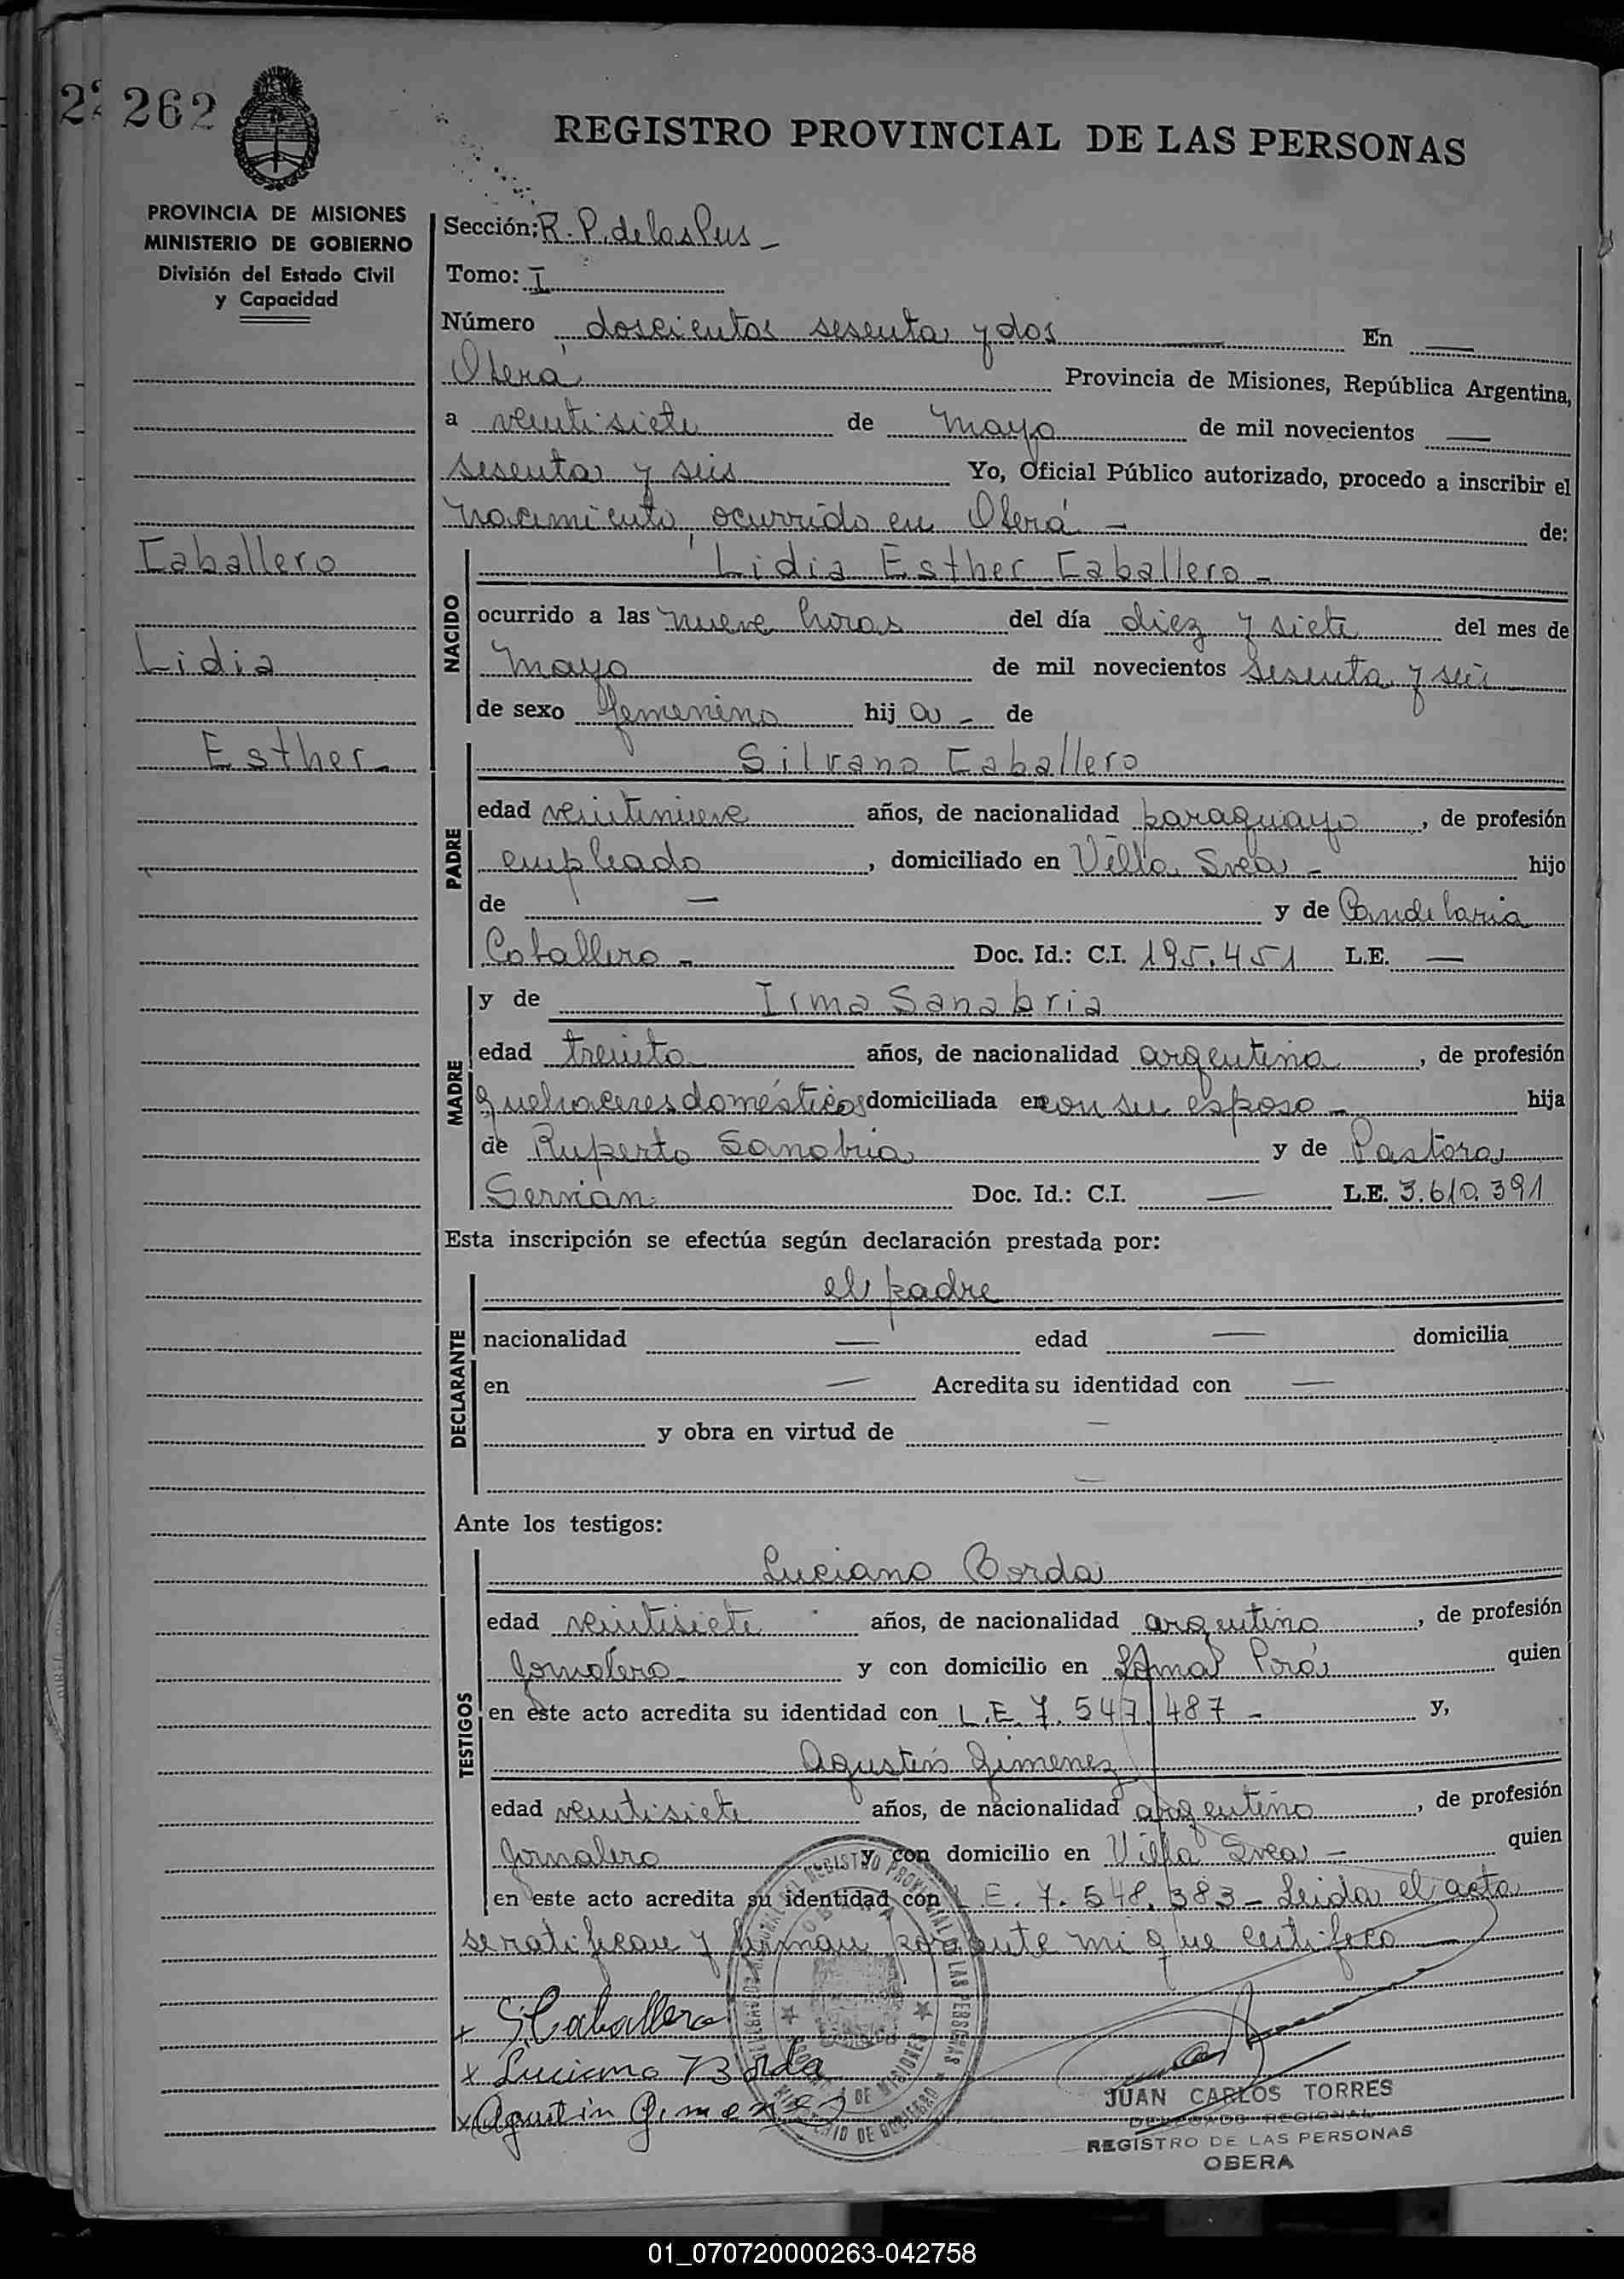 262
REGISTRO PROVINCIAL DE LAS PERSONAS
PROVINCIA DE MISIONES
MINISTERIO DE GOBIERNO
División del Estado Civil
y Capacidad
Sección: R. P. de las Pers -
Tomo: I
Número doscientos sesenta y dos — En —
Oberá Provincia de Misiones, República Argentina,
a veintisiete de mayo de mil novecientos —
sesenta y seis Yo, Oficial Público autorizado, procedo a inscribir el
nacimiento ocurrido en Oberá - de:
Caballero
Lidia
Esther -
NACIDO
Lidia Esther Caballero -
ocurrido a las nueve horas del día diez y siete del mes de
mayo de mil novecientos sesenta y seis
de sexo femenino hij a - de
PADRE
Silvano Caballero
edad veintinueve años, de nacionalidad paraguayo, de profesión
empleado, domiciliado en Villa Svea - hijo
de — y de Candelaria
Caballero - Doc. Id.: C.I. 195.451 L.E. —
MADRE
y de Irma Sanabria
edad treinta años, de nacionalidad argentina, de profesión
quehaceres domésticos domiciliada en con su esposo - hija
de Ruperto Sanabria y de Pastora
Servian Doc. Id.: C.I. — L.E. 3.610.391
Esta inscripción se efectúa según declaración prestada por:
DECLARANTE
el padre
nacionalidad — edad — domicilia
en — Acredita su identidad con —
y obra en virtud de —
—
Ante los testigos:
TESTIGOS
Luciano Borda
edad veintisiete años, de nacionalidad argentino, de profesión
Jornalero y con domicilio en quien
en este acto acredita su identidad con L.E. 7.547.487 - y,
Agustín Gimenez
edad veintisiete años, de nacionalidad argentino, de profesión
Jornalero y con domicilio en Villa Svea - quien
en este acto acredita su identidad con L.E. 7.548.383 - Leida el acta
se ratifican y firman por ante mi que certifico
S. Caballero
x Luciano Borda
x Agustin Gimenez
JUAN CARLOS TORRES
DELEGADO REGIONAL
REGISTRO DE LAS PERSONAS
OBERA
01_070720000263-042758